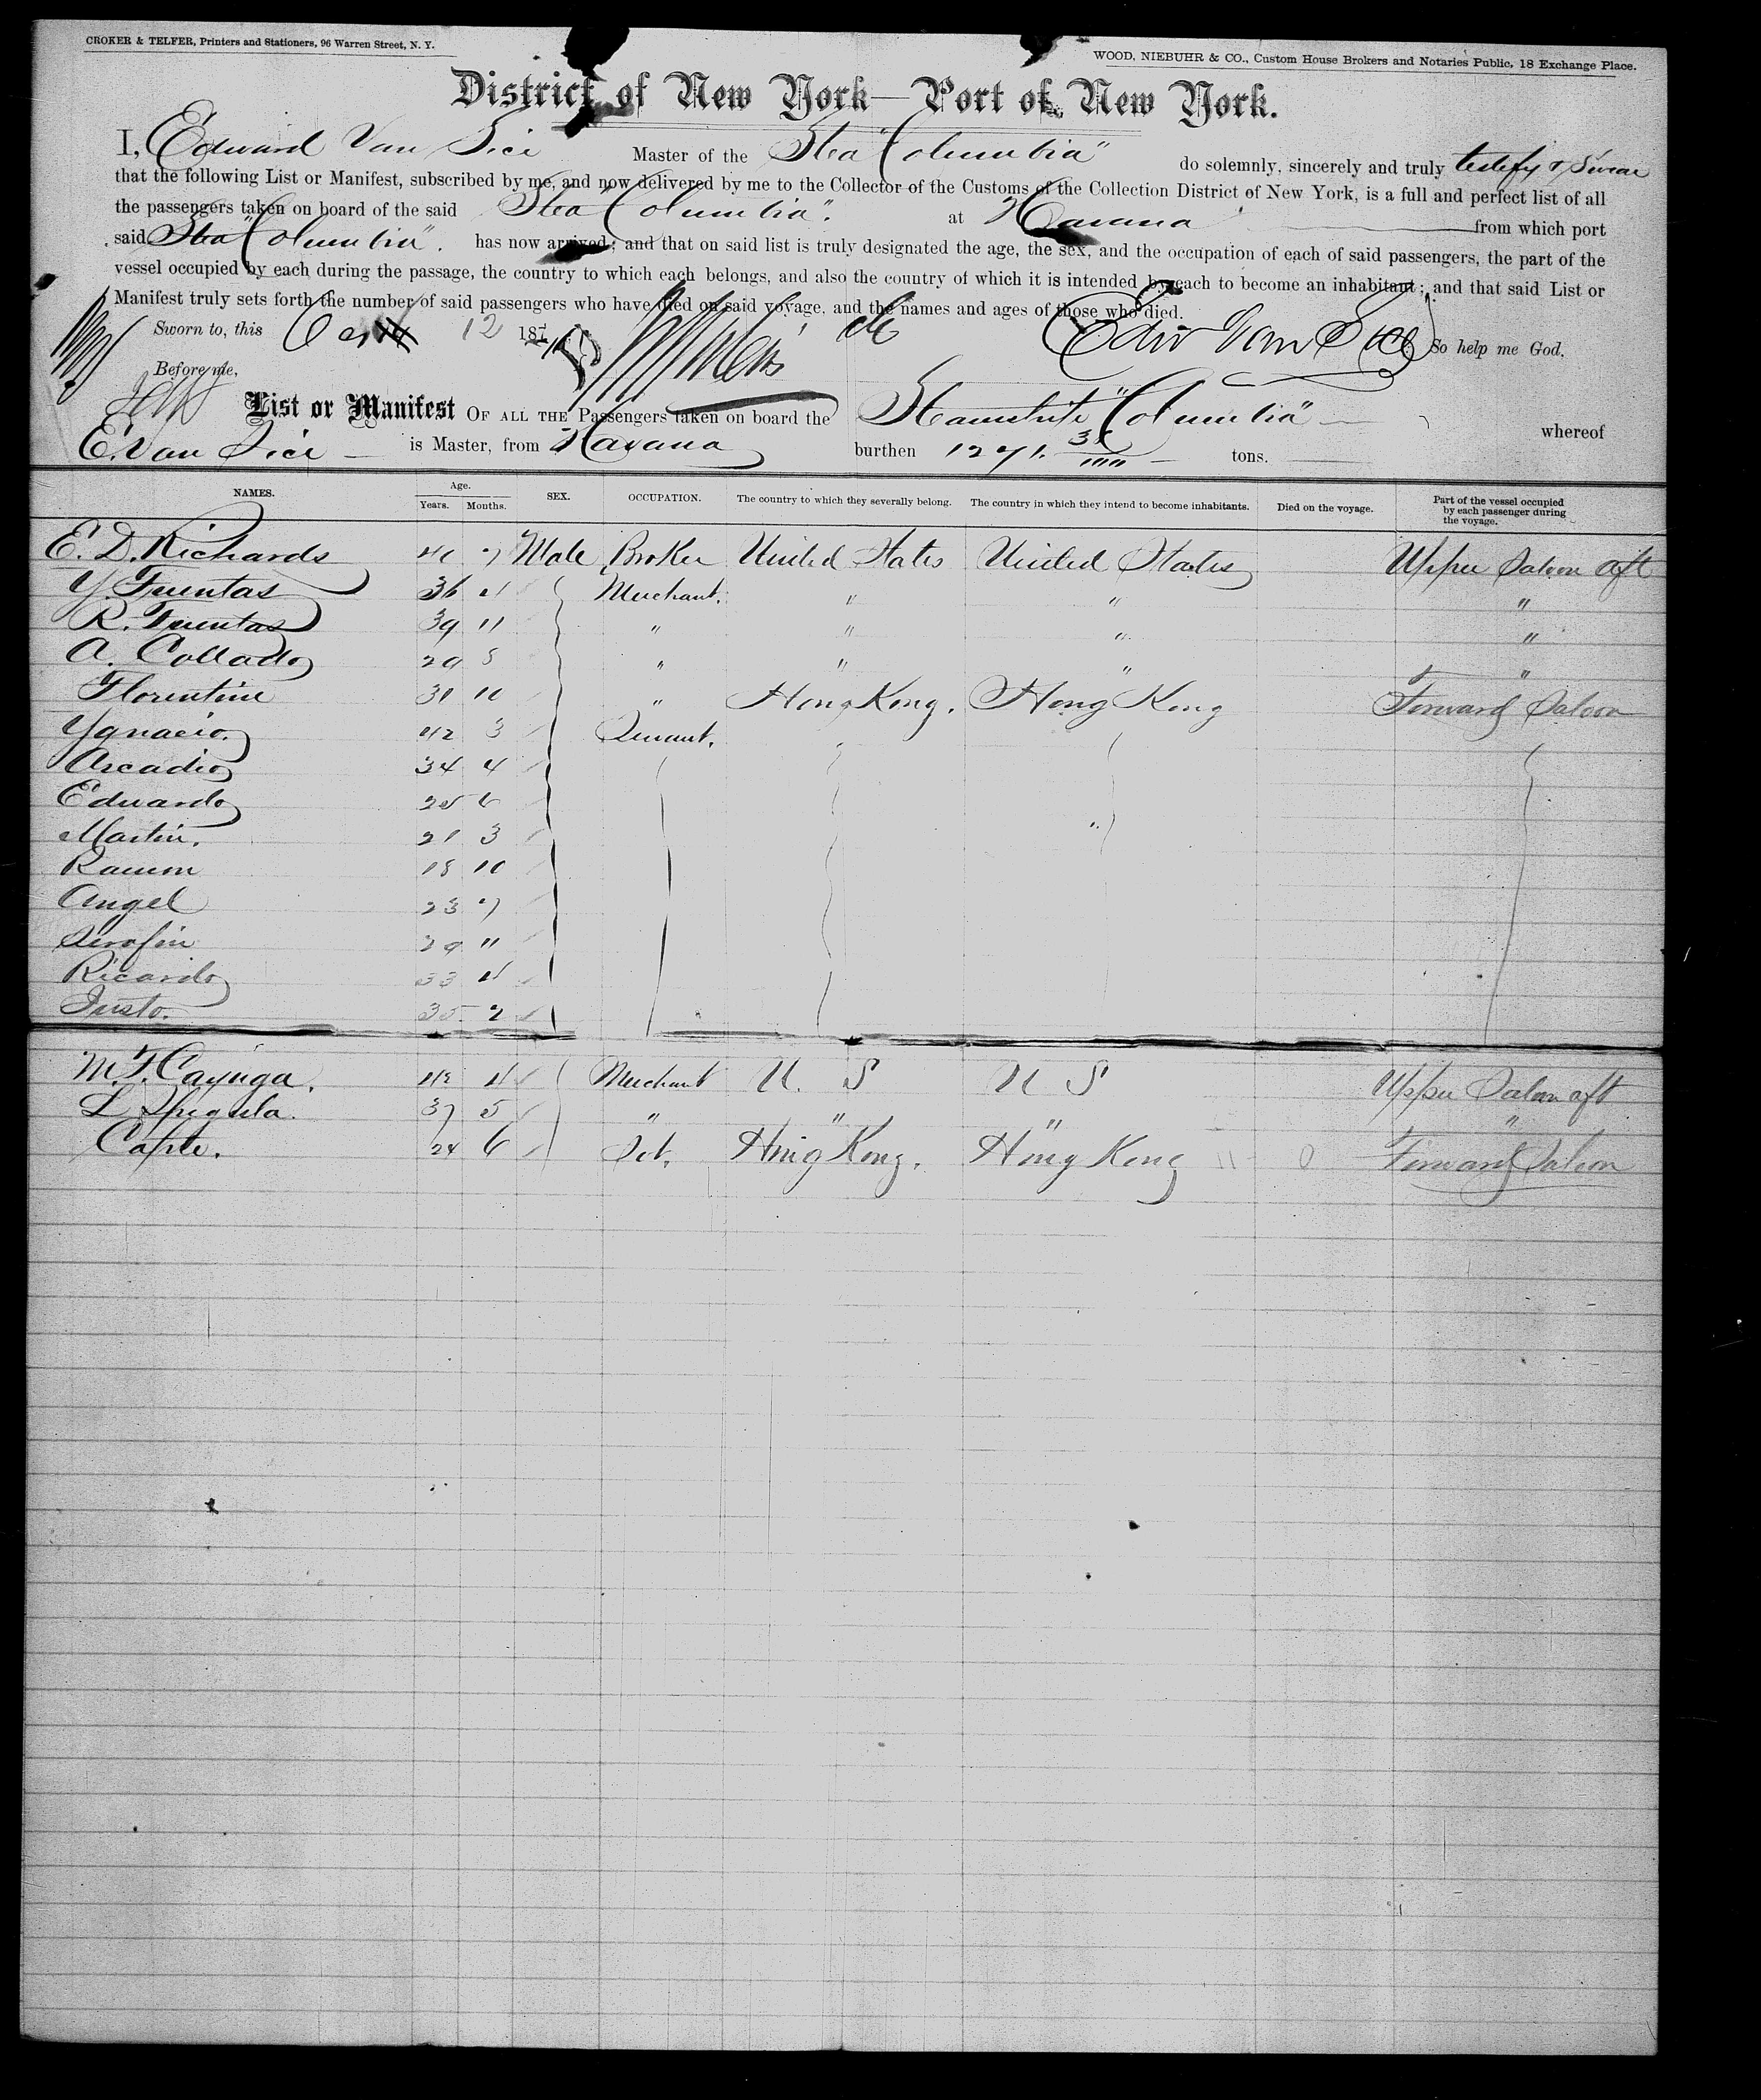 CROKER & TELFER, Printers and Stationers, 96 Warren Street, N. Y.
WOOD, NIEBUHR & CO., Custom House Brokers and Notaries Public, 18 Exchange Place.
District of New York—Port of New York.
I, Edward Van Sice Master of the Stea "Columbia" do solemnly, sincerely and truly testify & swear
that the following List or Manifest, subscribed by me, and now delivered by me to the Collector of the Customs of the Collection District of New York, is a full and perfect list of all
the passengers taken on board of the said Stea "Columbia". at Havana from which port
said Stea "Columbia". has now arrived; and that on said list is truly designated the age, the sex, and the occupation of each of said passengers, the part of the
vessel occupied by each during the passage, the country to which each belongs, and also the country of which it is intended by each to become an inhabitant; and that said List or
Manifest truly sets forth the number of said passengers who have died on said voyage, and the names and ages of those who died.
Sworn to, this 12 187 Edw Van Sice So help me God.
Before me,
List or Manifest OF ALL THE Passengers taken on board the "Columbia" whereof
E. Van Sice is Master, from Havana burthen 1271. tons.
NAMES. Age. Years. Months. SEX. OCCUPATION. The country to which they severally belong. The country in which they intend to become inhabitants. Died on the voyage. Part of the vessel occupied by each passenger during the voyage.
E. D. Richards 7 Male Broker United States United States Upper Saloon aft
Y. Fuentas 36 4 Merchant. " " "
R. Fuentas 39 11 " " " "
A. Collado 29 5 " " " "
Florentine 31 10 " Hong Kong. Hong Kong Forward Saloon
Ygnacio. 42 3
Arcadio 34 4
Eduardo 25 6
Martin. 21 3
Ramon 18 10
Angel 23 7
Serafin 29 "
Ricardo 33 4
Justo. 35 2
M. F. Cayuga. 4 Merchant U. S U S Upper Saloon aft
L. 37 5 " " " "
24 6 Hong Kong. Hong Kong 0 Forward Saloon